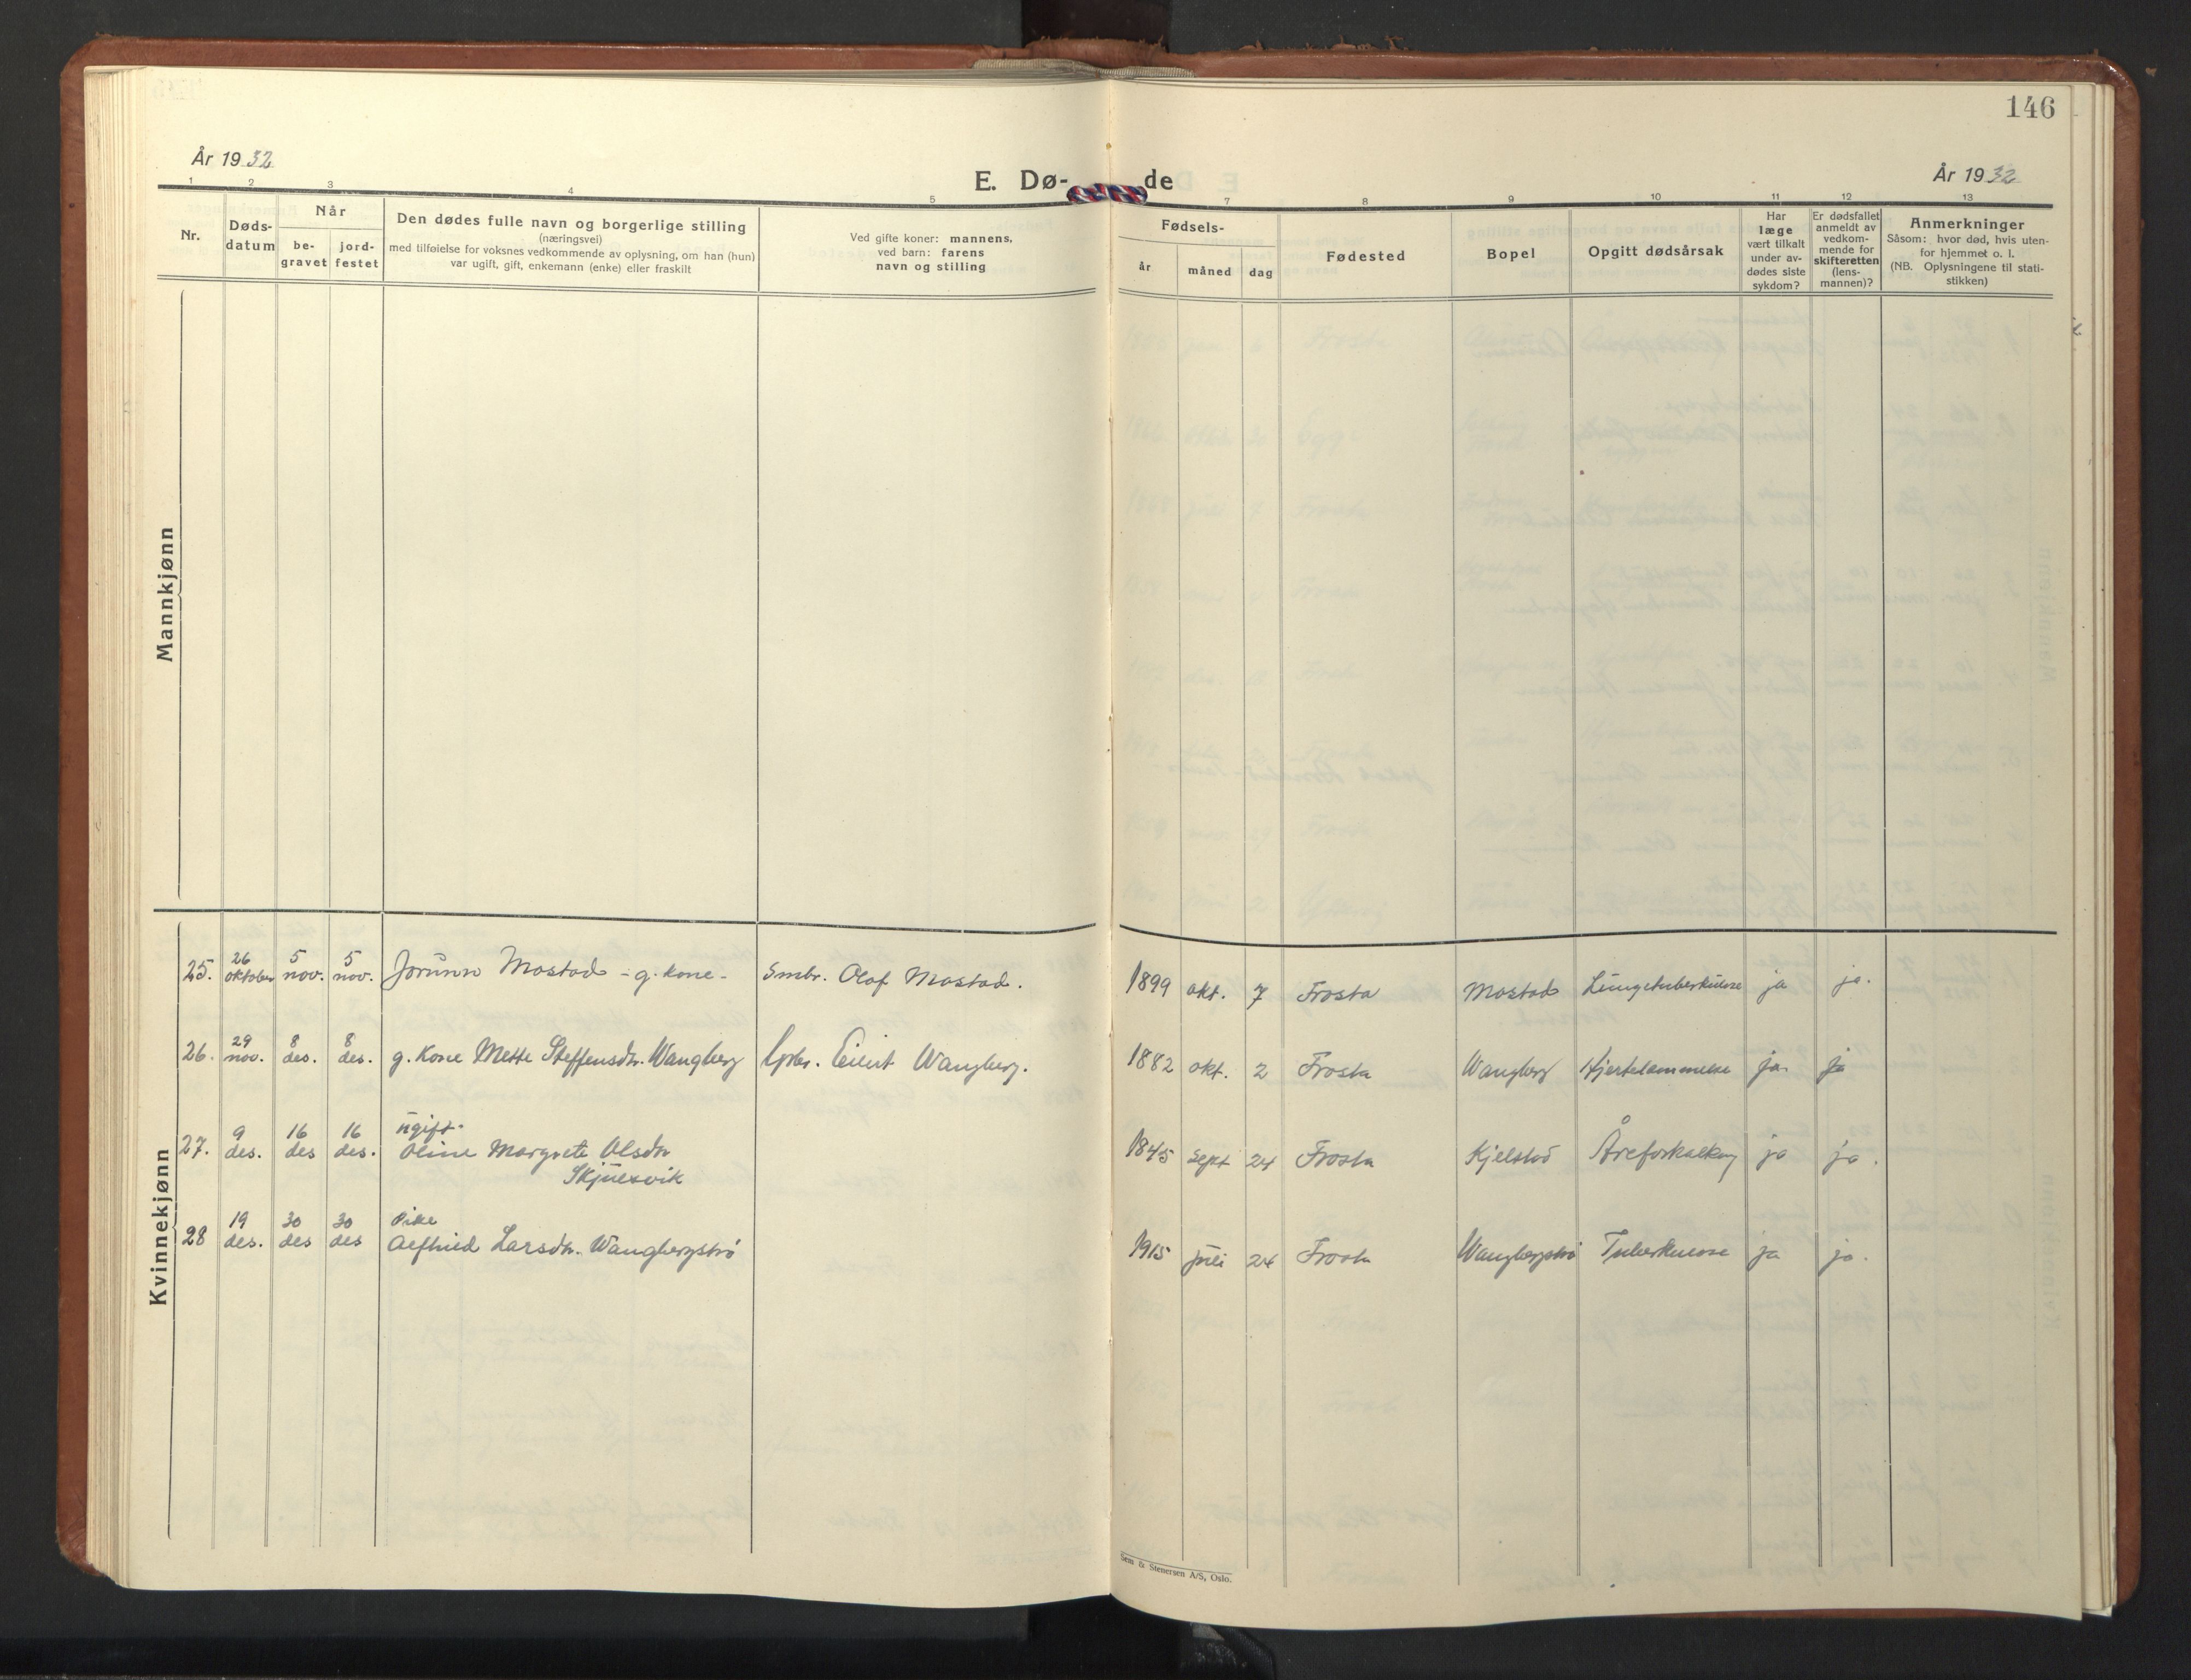 146
År 1932
E. Dø-
de
År 1932
1 2 3 4 5
7 8 9 10 11 12 13
Nr.
Døds-
datum
Når
be-
gravet
jord-
festet
Den dødes fulle navn og borgerlige stilling
(næringsvei)
med tilføielse for voksnes vedkommende av oplysning, om han (hun)
var ugift, gift, enkemann (enke) eller fraskilt
Ved gifte koner: mannens,
ved barn: farens
navn og stilling
Fødsels-
år
måned
dag
Fødested
Bopel
Opgitt dødsårsak
Har
læge
vært tilkalt
under av-
dødes siste
sykdom?
Er dødsfallet
anmeldt av
vedkom-
mende for
skifteretten
(lens-
mannen)?
Anmerkninger
Såsom: hvor død, hvis uten-
for hjemmet o. l.
(NB. Oplysningene til stati-
stikken)
Mannkjønn
Kvinnekjønn
25. 26 oktober 5 nov. 5 nov. Jorunn Mostad - g. kone - Smbr. Olaf Mostad. 1899 okt. 7 Frosta Mostad Lungetuberkulose ja ja.
26. 29 nov. 8 des. 8 des. g. kone Mette Steffensdtr. Wangberg Gpbr. Eilert Wangberg. 1882 okt. 2 Frosta Wangberg Hjertelammelse ja. ja
27. 9 des. 16 des 16 des. ugift.
Oline Margrete Olsdtr
Skjuesvik 1845 sept 24 Frosta Kjelstad Åreforkalkng ja ja.
28 19 des. 30 des 30 des Pike
Alfhild Larsdtr. Wangbergstrø 1915 juli 24 Frosta Wangbergstrø Tuberkulose ja ja.
Sem & Stenersen A/S, Oslo.